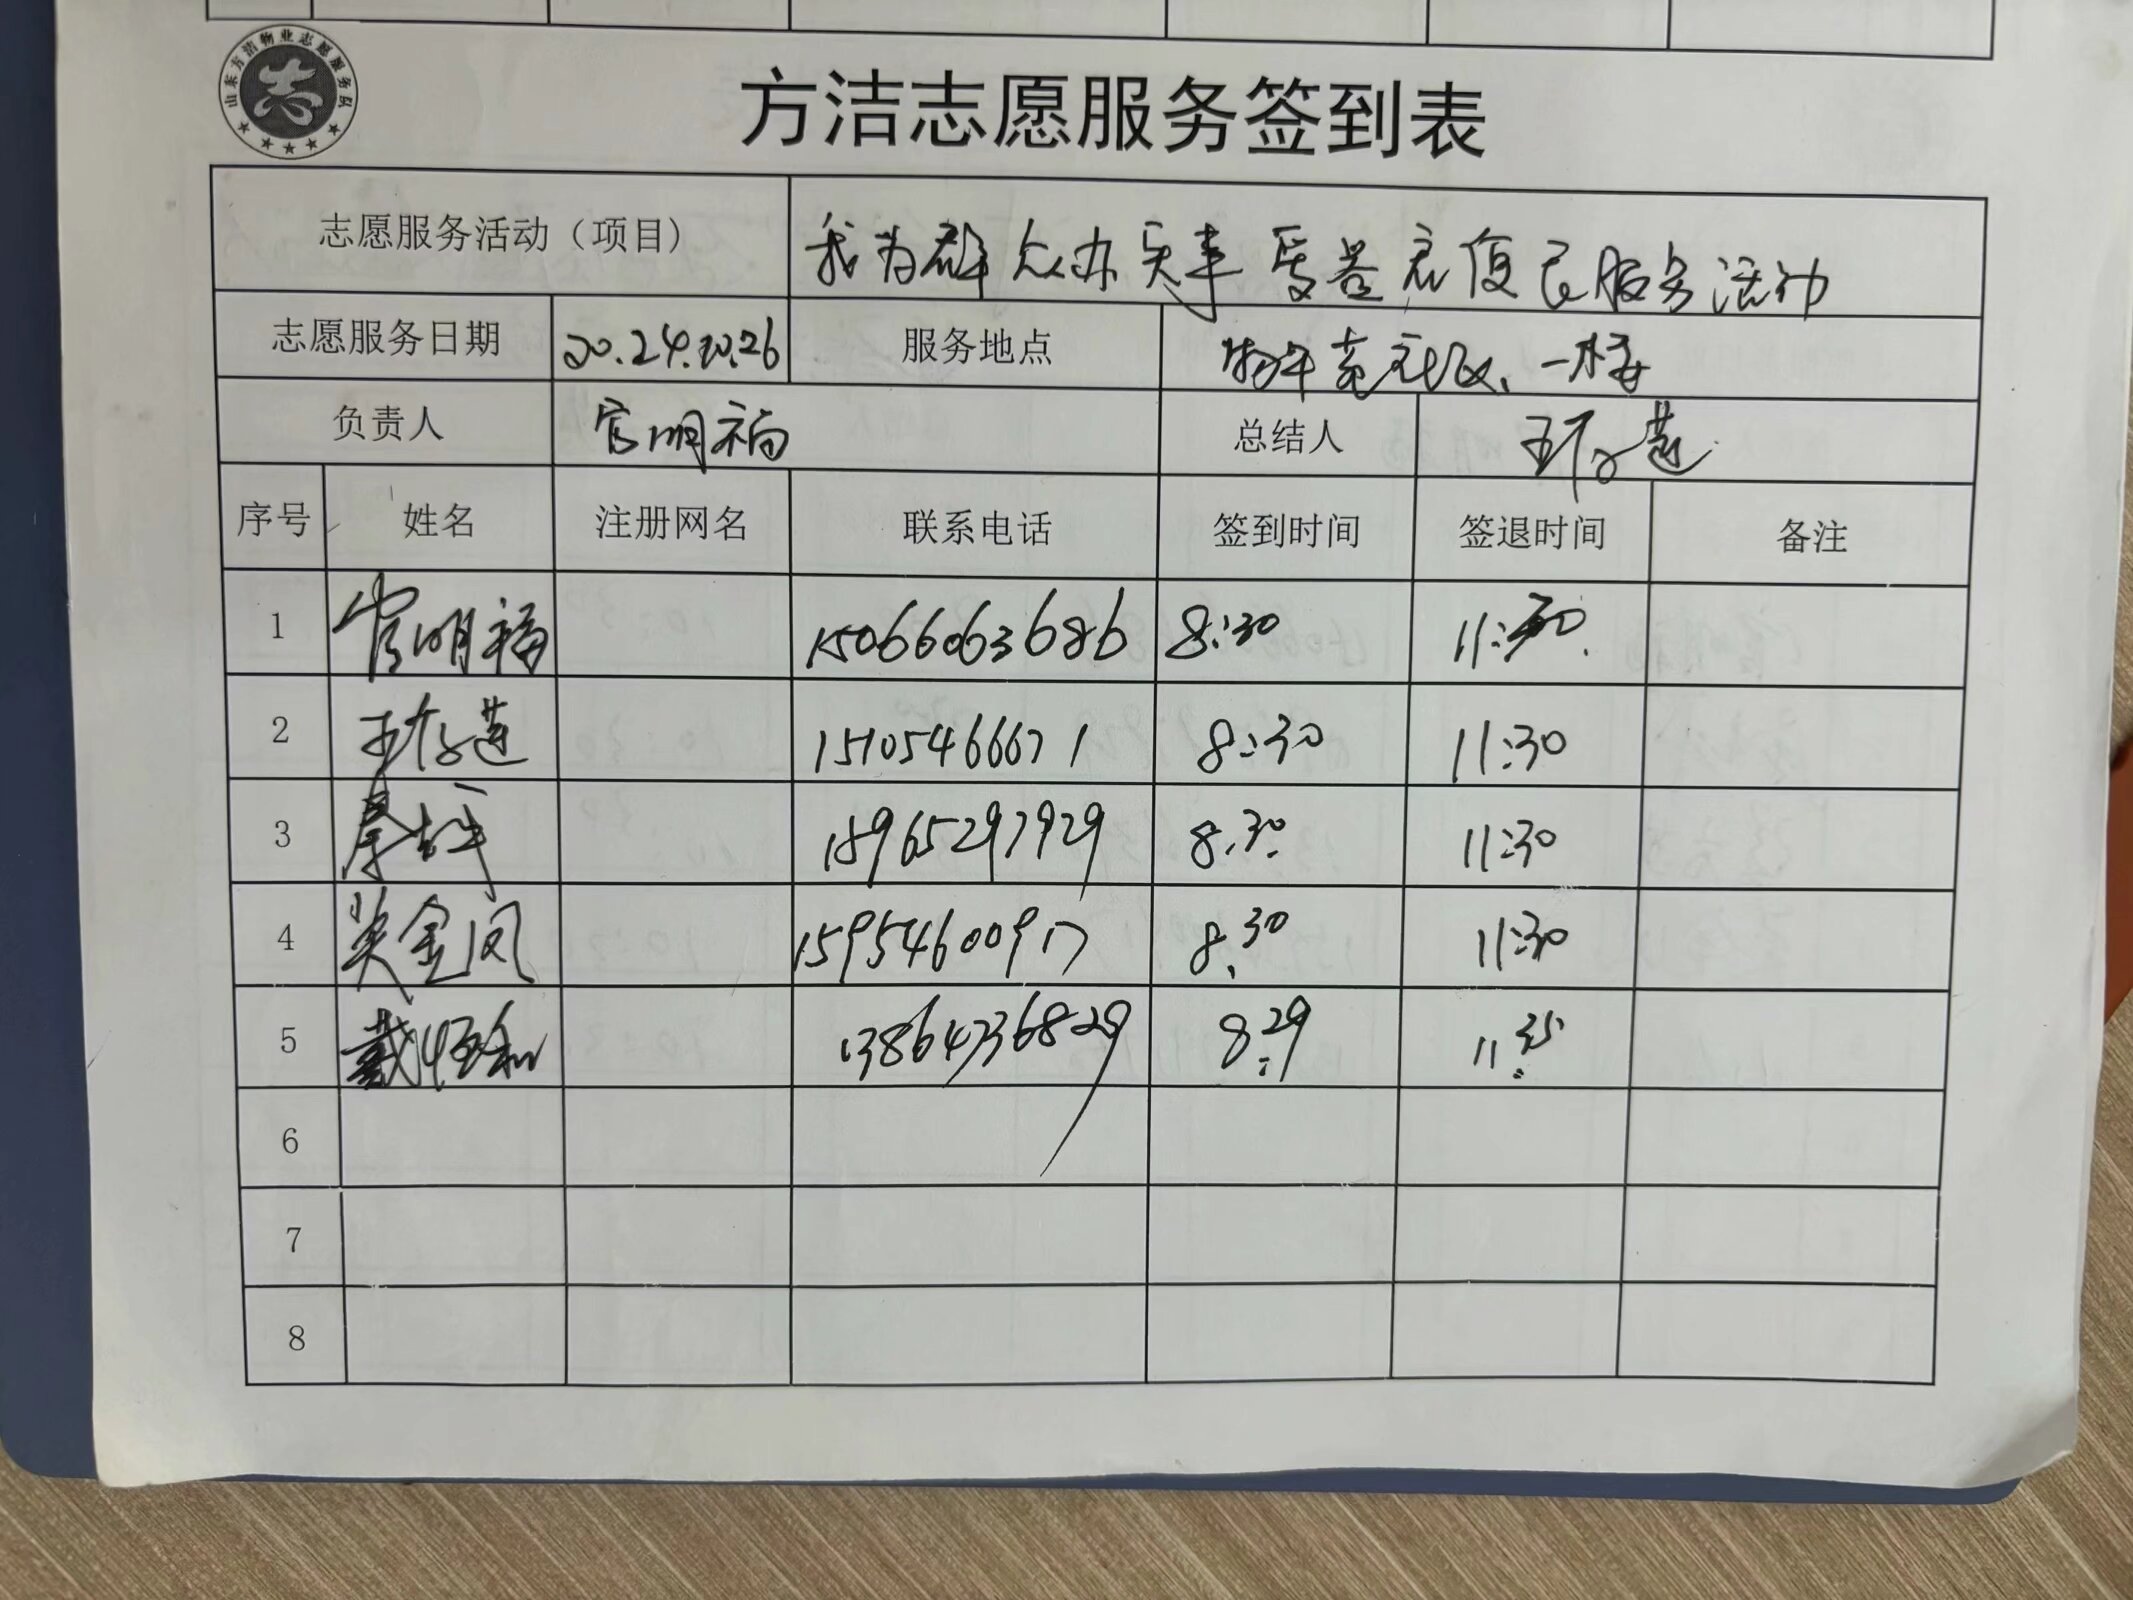 山东方洁物业志愿服务队
志
方洁志愿服务签到表
志愿服务活动（项目） 我为群众办实事 服务活动
志愿服务日期 20.24.10.26 服务地点
负责人 官明福 总结人
序号 姓名 注册网名 联系电话 签到时间 签退时间 备注
1 官明福 15066063686 8:30 11:30
2 15105466671 8:30 11:30
3 18965297929 8:30 11:30
4 金凤 15954600917 8:30 11:30
5 戴 13864736829 8:29 11:35
6
7
8